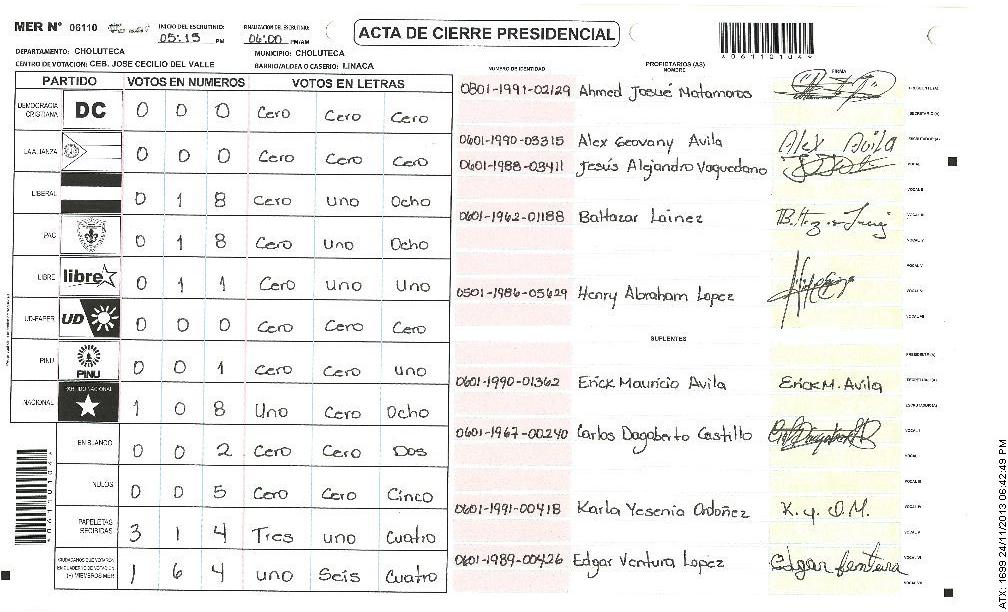 MER Nº 06110
INICIO DEL ESCRUTINIO:
05:15 PM
FINALIZACION DEL ESCRUTINIO:
06:00 PM/AM
ACTA DE CIERRE PRESIDENCIAL
DEPARTAMENTO: CHOLUTECA
MUNICIPIO: CHOLUTECA
CENTRO DE VOTACION: CEB. JOSE CECILIO DEL VALLE
BARRIO/ALDEA O CASERIO: LINACA
PARTIDO VOTOS EN NUMEROS VOTOS EN LETRAS
DEMOCRACIA CRISTIANA DC 0 0 0 Cero Cero Cero
LA ALIANZA 0 0 0 Cero Cero Cero
LIBERAL 0 1 8 Cero uno Ocho
PAC 0 1 8 Cero Uno Ocho
LIBRE libre 0 1 1 Cero Uno Uno
UD-FAPER UD 0 0 0 Cero Cero Cero
PINU PINU 0 0 1 Cero Cero uno
NACIONAL PARTIDO NACIONAL 1 0 8 Uno Cero Ocho
EN BLANCO 0 0 2 Cero Cero Dos
NULOS 0 0 5 Cero Cero Cinco
PAPELETAS RECIBIDAS 3 1 4 Tres uno Cuatro
CIUDADANOS QUE VOTARON EN CUADERNO DE VOTACION (+) MIEMBROS MER 1 6 4 uno Seis Cuatro
PROPIETARIOS (AS)
NUMERO DE IDENTIDAD NOMBRE FIRMA
0801-1991-02129 Ahmed Josué Matamoros
0601-1990-03315 Alex Geovany Avila Alex Avila
0601-1988-03411 Jesús Alejandro Vaquedano
0601-1962-01188 Baltazar Lainez
0501-1986-05629 Henry Abraham Lopez
SUPLENTES
0601-1990-01362 Erick Mauricio Avila Erick M. Avila
0601-1967-00240 Carlos Dagoberto Castillo
0601-1991-00418 Karla Yesenia Ordoñez K. y. O.M.
0601-1989-00426 Edgar Ventura Lopez Edgar Ventura
ATX: 1699 24/11/2013 06:42:49 PM